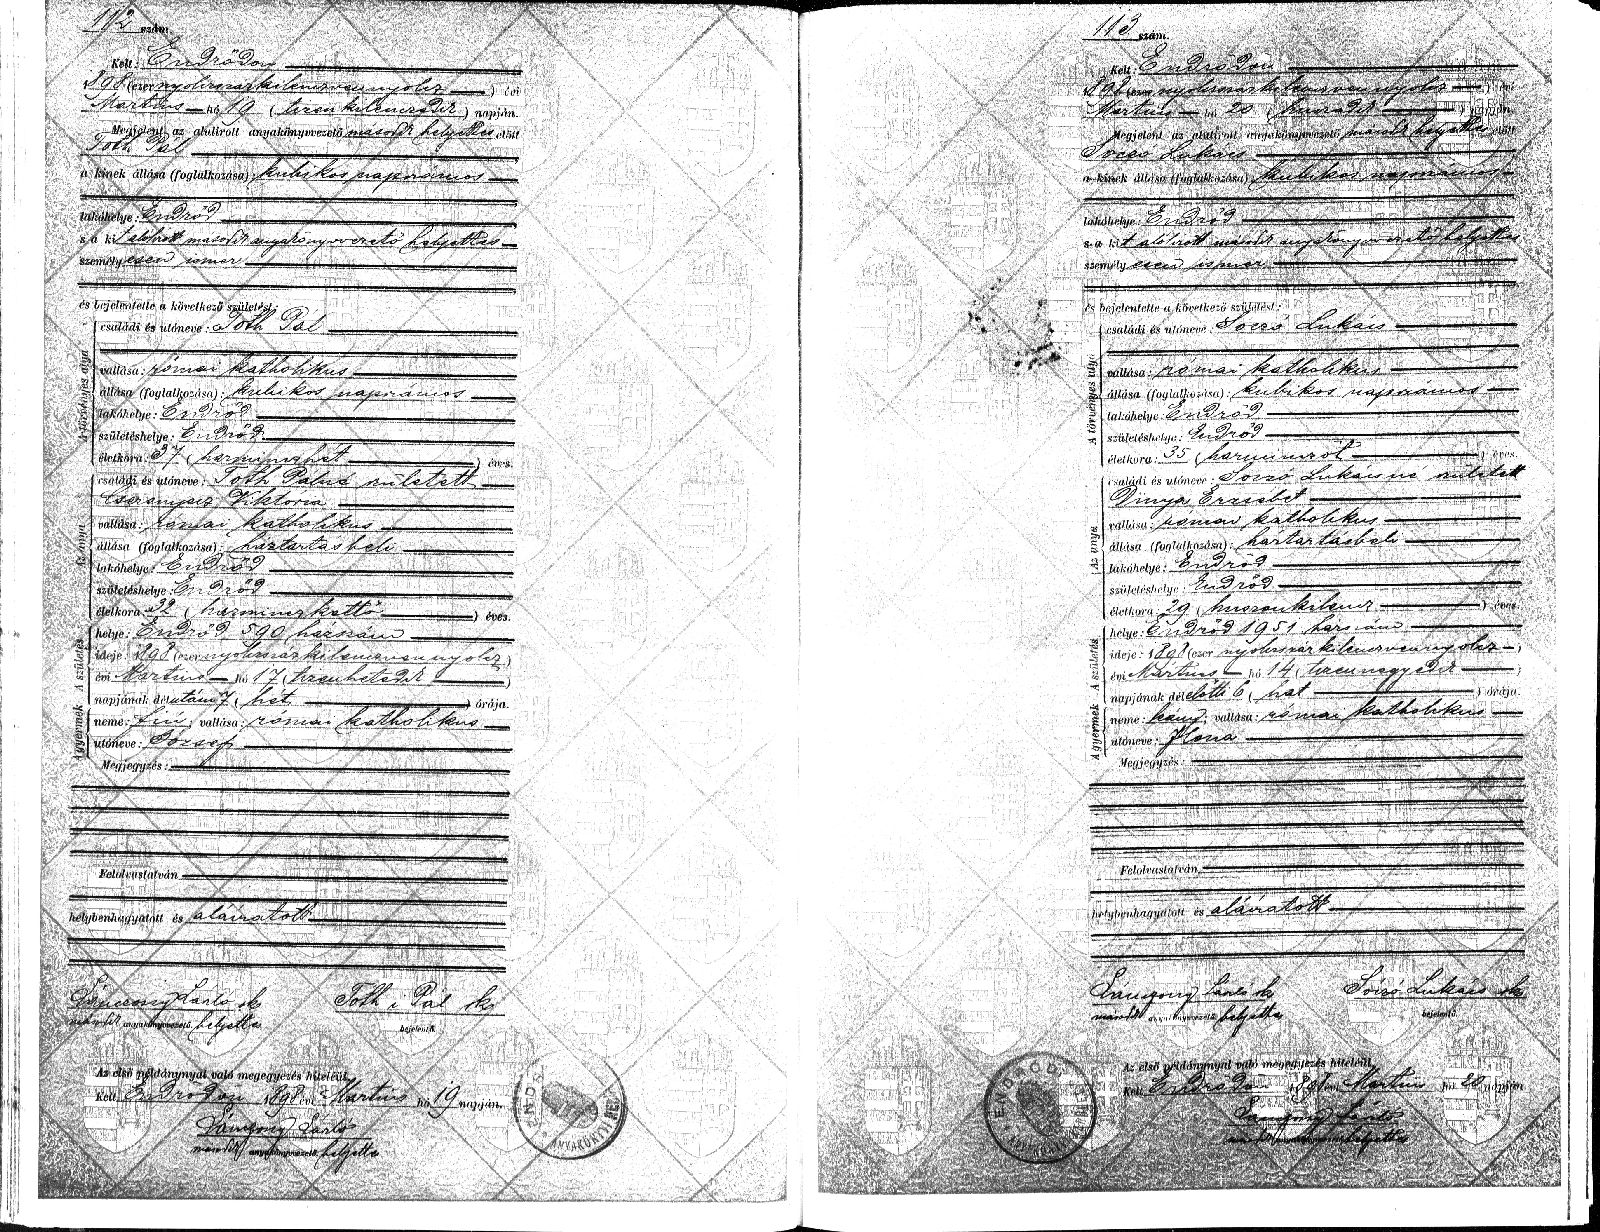 112 szám.
Kelt: Endrődön
1898 (ezer nyolcszázkilencvennyolcz) évi
Martius hó 19 (tizenkilenczedik) napján.
Megjelent az alulirott anyakönyvvezető második helyettes előtt
Tóth Pál
a kinek állása (foglalkozása): kubikos napszámos
lakóhelye: Endrőd
s a kit alólirott második anyakönyvvezető helyettes
személyesen ismer
és bejelentette a következő születést:
A törvényes atya
családi és utóneve: Tóth Pál
vallása: római katholikus
állása (foglalkozása): kubikos napszámos
lakóhelye: Endrőd
születéshelye: Endrőd
életkora: 37 (harminczhét) éves.
Az anya
családi és utóneve: Tóth Pálné született
Viktoria
vallása: római katholikus
állása (foglalkozása): háztartásbeli
lakóhelye: Endrőd
születéshelye: Endrőd
életkora: 32 (harminczkettő) éves.
A születés
helye: Endrőd 590 házszám
ideje: 1898 (ezer nyolcszázkilencvennyolcz)
évi Martius hó 17 (tizenhetedik)
napjának délutáni 7 (hét) órája.
A gyermek
neme: fiú; vallása: római katholikus
utóneve: József
Megjegyzés:
Felolvastatván
helybenhagyatott és aláiratott
László sk
második anyakönyvvezető helyettes
Tóth i Pál sk
bejelentő.
Az első példánynyal való megegyezés hiteléül.
Kelt Endrődön 1898 évi Martius hó 19 napján.
László
második anyakönyvvezető helyettes
113 szám.
Kelt: Endrődön
1898 (ezer nyolcszázkilencvennyolcz) évi
Martius hó 20 (huszadik) napján.
Megjelent az alulirott anyakönyvvezető második helyettes előtt
Soczó Lukács
a kinek állása (foglalkozása): kubikos napszámos
lakóhelye: Endrőd
s a kit alólirott második anyakönyvvezető helyettes
személyesen ismer
és bejelentette a következő születést:
A törvényes atya
családi és utóneve: Soczó Lukács
vallása: római katholikus
állása (foglalkozása): kubikos napszámos
lakóhelye: Endrőd
születéshelye: Endrőd
életkora: 35 (harminczöt) éves.
Az anya
családi és utóneve: Soczó Lukácsné született
Dinya Erzsébet
vallása: római katholikus
állása (foglalkozása): háztartásbeli
lakóhelye: Endrőd
születéshelye: Endrőd
életkora: 29 (huszonkilencz) éves.
A születés
helye: Endrőd 1951 házszám
ideje: 1898 (ezer nyolcszázkilencvennyolcz)
évi Mártius hó 14 (tizennegyedik)
napjának délelőtti 6 (hat) órája.
A gyermek
neme: leány; vallása: római katholikus
utóneve: Ilona
Megjegyzés:
Felolvastatván,
helybenhagyatott és aláiratott
László sk
második anyakönyvvezető helyettes
Soczó Lukács sk
bejelentő.
Az első példánynyal való megegyezés hiteléül.
Kelt: Endrődön 1898 évi Martius hó 20 napján
László
második anyakönyvvezető helyettes